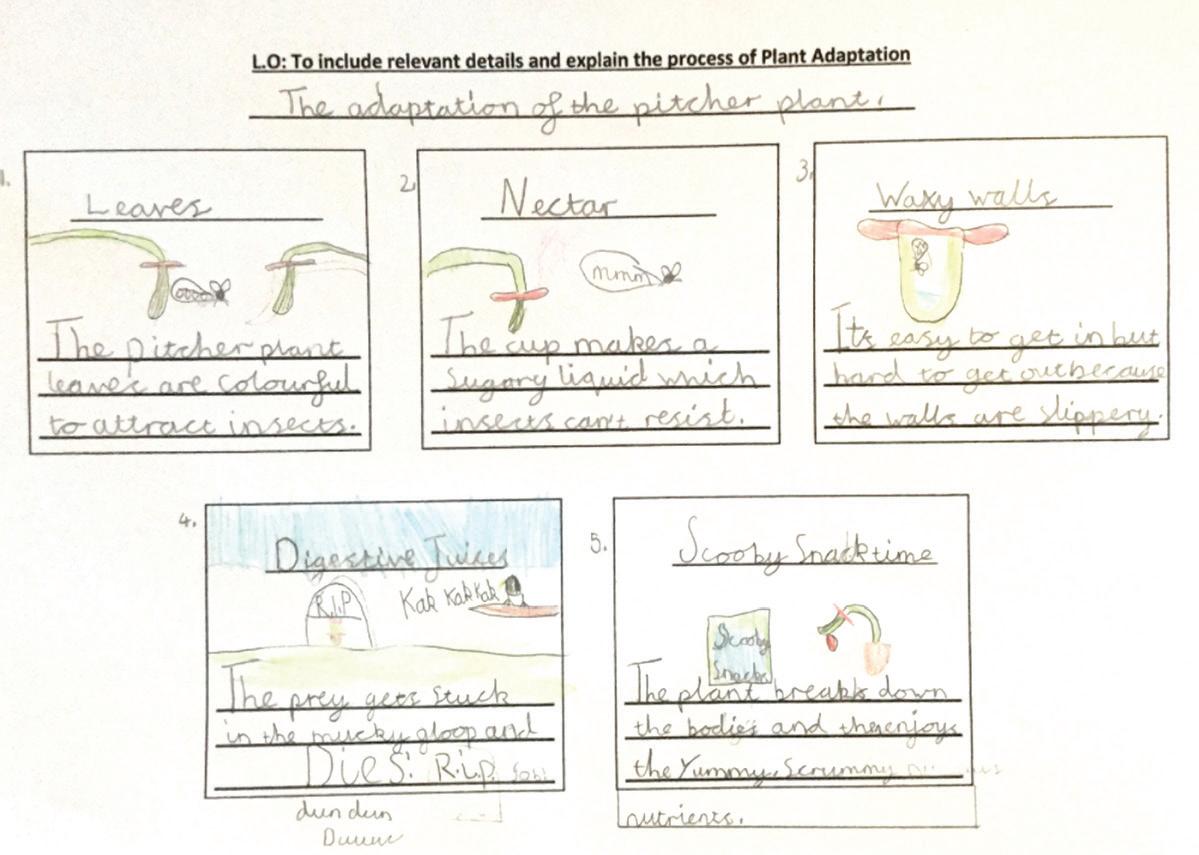 L.O: To include relevant details and explain the process of Plant Adaptation
The adaptation of the pitcher plant.
1.
Leaves
The pitcher plant
leaves are colourful
to attract insects.
2.
Nectar
mmm
The cup makes a
sugary liquid which
insects can't resist.
3.
Waxy walls
It's easy to get in but
hard to get out because
the walls are slippery.
4.
Digestive Juices
R.I.P
Kak Kak Kak
The prey gets stuck
in the mucky gloop and
Dies! R.I.P.
dun dun
Duuuu
5.
Scooby Snack time
Scooby
Snacks
The plant breaks down
the bodies and then enjoys
the Yummy, Scrummy
nutrients.